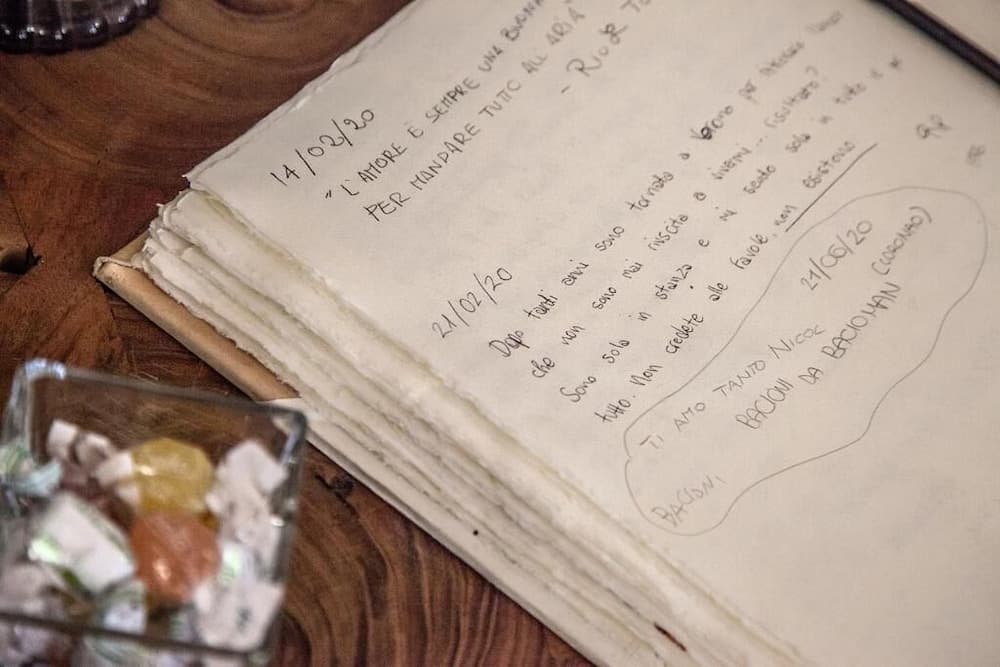 14/02/20
"L'AMORE È SEMPRE UNA BUONA
PER MANDARE TUTTO ALL'ARIA"
21/02/20
Dopo tanti anni sono tornata a Verona per
che non sono mai riuscita a risultato?
Sono sola in stanza e mi sento sola in tutto e
tutto. Non credete alle favole, non esistono
21/06/20
TI AMO TANTO
BACIONI DA BACIOMAN
BACIONI